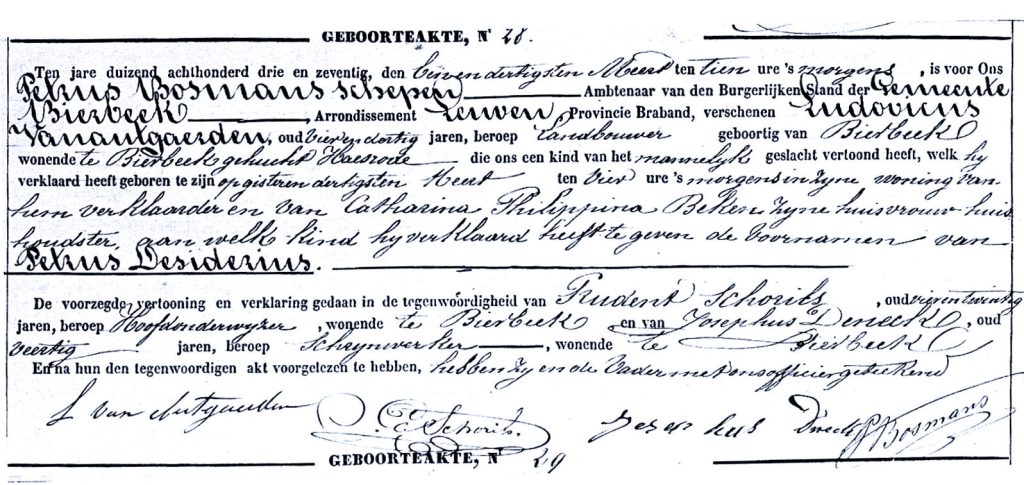 GEBOORTEAKTE, Nr 28.
Ten jare duizend achthonderd drie en zeventig, den Eenendertigsten Meert ten tien ure 's morgens, is voor Ons
Petrus Bosmans schepen Ambtenaar van den Burgerlijken Stand der Gemeente
Bierbeek, Arrondissement Leuven Provincie Braband, verschenen Ludovicus
Vanautgaerden, oud Vierendertig jaren, beroep Landbouwer geboortig van Bierbeek
wonende te Bierbeek gehucht Haesrode die ons een kind van het mannelyk geslacht vertoond heeft, welk hy
verklaard heeft geboren te zijn op gisteren dertigsten Meert ten Vier ure 's morgens in zyne woning van
hem verklaarder en van Catharina Philippina Beken zyne huisvrouw huis
houdster, aan welk kind hy verklaard heeft te geven de Voornamen van
Petrus Desiderius.
De voorzegde vertooning en verklaring gedaan in de tegenwoordigheid van Prudent Schorils, oud vierentwintig
jaren, beroep Hoofdonderwyzer, wonende te Bierbeek en van Josephus Deneck, oud
veertig jaren, beroep Schrynwerker, wonende te Bierbeek
En na hun den tegenwoordigen akt voorgelezen te hebben, hebben zy en de Vader met ons officier geteekend
L Van Autgaerden Schorils Josephus P Bosmans
GEBOORTEAKTE, Nr 29